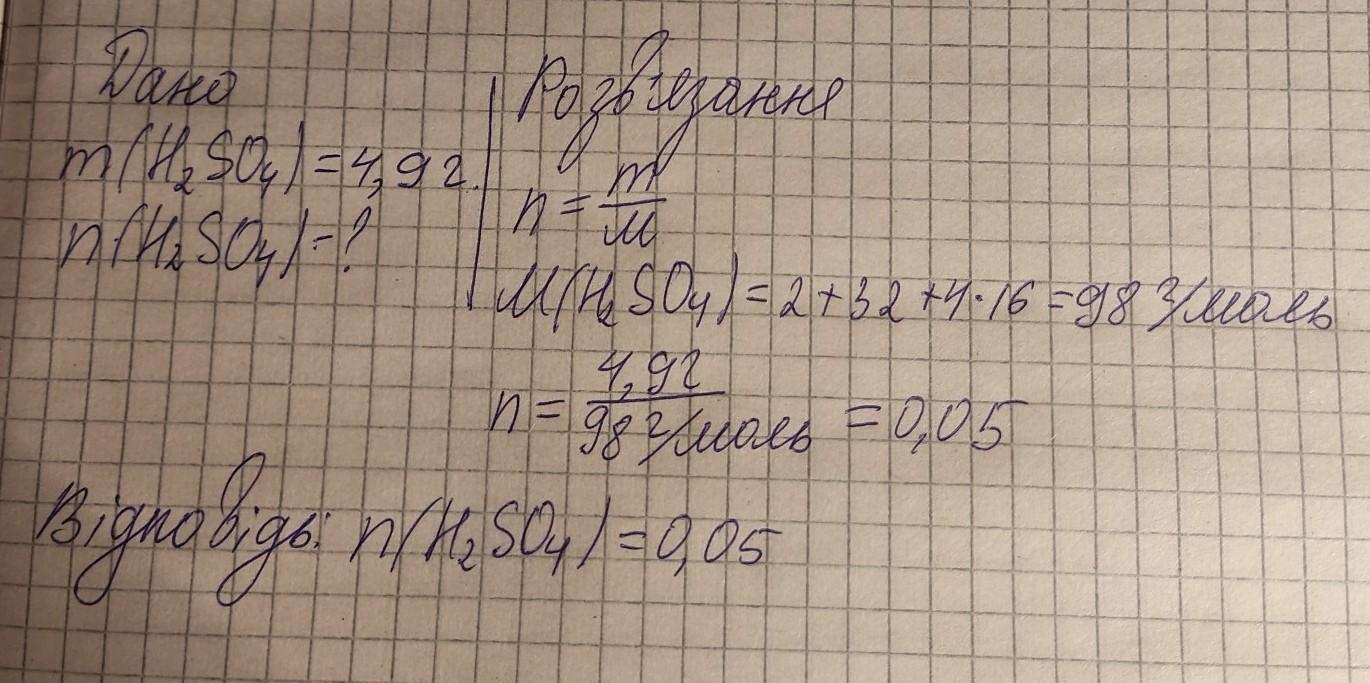 Дано
m(H₂SO₄)=4,9г.
n(H₂SO₄)-?
Розв'язання
n = m/M
M(H₂SO₄)=2+32+4·16=98 г/моль
n = 4,9г/98 г/моль = 0,05
Відповідь: n(H₂SO₄)=0,05